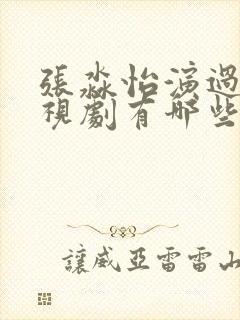 張淼怡演過
視劇有哪些
讓威亞雷雷山